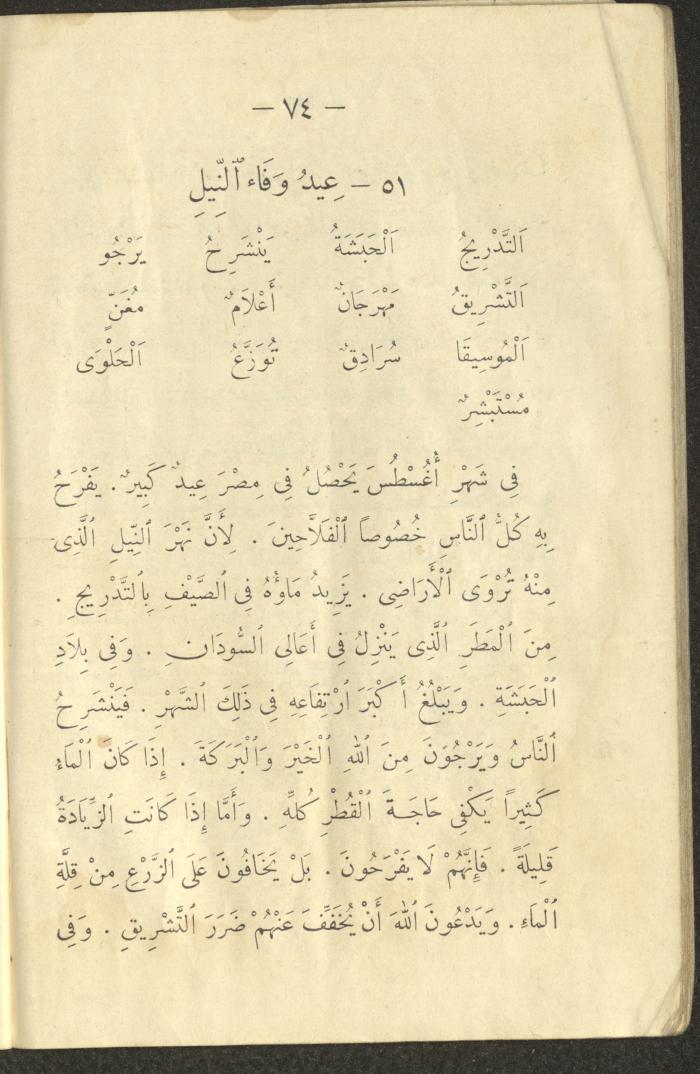 — ٧٤ —
٥١ — عِيدُ وَفَاء ٱلنِّيلِ
اَلتَّدْرِيجُ اَلْحَبَشَةُ يَنْشَرِحُ يَرْجُو
اَلتَّشْرِيقُ مَهْرَجَانٌ أَعْلَامٌ مُغَنٍّ
اَلْمُوسِيقَا سُرَادِقٌ تُوَزَّعُ اَلْحَلْوَى
مُسْتَبْشِرٌ
فِى شَهْرِ أُغُسْطُسَ يَحْصُلُ فِى مِصْرَ عِيدٌ كَبِيرٌ . يَفْرَحُ
بِهِ كُلُّ ٱلنَّاسِ خُصُوصاً ٱلْفَلَّاحِينَ . لِأَنَّ نَهْرَ ٱلنِّيلِ ٱلَّذِى
مِنْهُ تُرْوَى ٱلْأَرَاضِى . يَزِيدُ مَاؤُهُ فِى ٱلصَّيْفِ بِٱلتَّدْرِيجِ .
مِنَ ٱلْمَطَرِ ٱلَّذِى يَنْزِلُ فِى أَعَالِى ٱلسُّودَانِ . وَفِى بِلَادِ
ٱلْحَبَشَةِ . وَيَبْلُغُ أَكْبَرَ ٱرْتِفَاعِهِ فِى ذَلِكَ ٱلشَّهْرِ . فَيَنْشَرِحُ
ٱلنَّاسُ وَيَرْجُونَ مِنَ ٱللهِ ٱلْخَيْرَ وَٱلْبَرَكَةَ . إِذَا كَانَ ٱلْمَاءُ
كَثِيراً يَكْفِى حَاجَةَ ٱلْقُطْرِ كُلِّهِ . وَأَمَّا إِذَا كَانَتِ ٱلزِّيَادَةُ
قَلِيلَةً . فَإِنَّهُمْ لَا يَفْرَحُونَ . بَلْ يَخَافُونَ عَلَى ٱلزَّرْعِ مِنْ قِلَّةِ
ٱلْمَاءِ . وَيَدْعُونَ ٱللهَ أَنْ يُخَفِّفَ عَنْهُمْ ضَرَرَ ٱلتَّشْرِيقِ . وَفِى